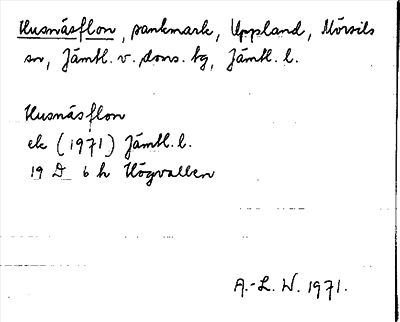 Husnäsflon, sankmark, Uppland, Mörsils
sn, Jämtl. v. doms. tg, Jämtl. l.
Husnäsflon
ek (1971) Jämtl. l.
19 D 6 h Högvallen
A.-L. W. 1971.